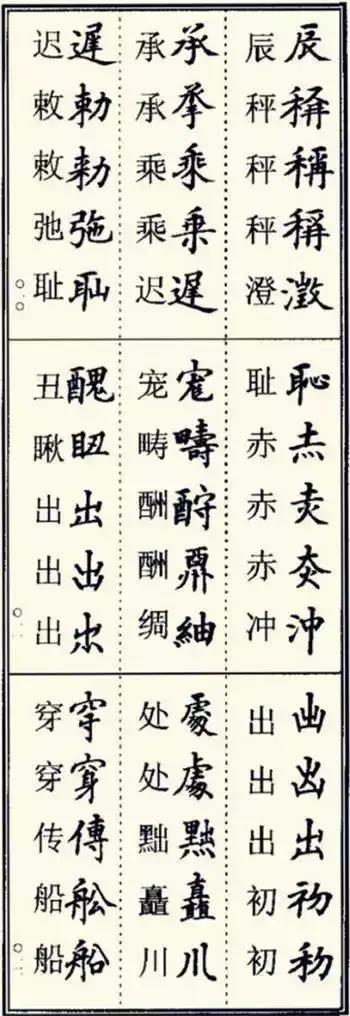 辰稱稱稱澂
辰秤秤秤澄
承乗遲
承承乘乘迟
遲勑勑弛耻
迟敕敕弛耻
〇一〇
恥赤沖
耻赤赤赤冲
疇紬
宠畴酬酬绸
醜出出
丑瞅出出出
出出初初
出出出初初
處處黜矗川
处处黜矗川
穿穿傳舩船
穿穿传船船